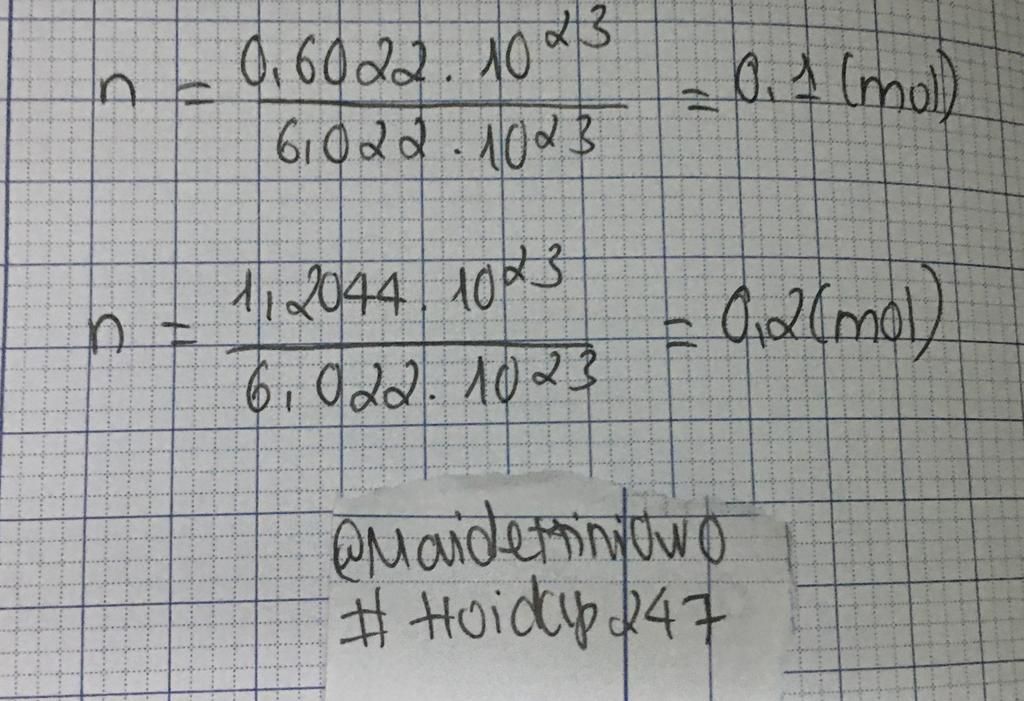 n = 0,6022 . 10^23 / 6,022 . 10^23 = 0,1 (mol)
n = 1,2044 . 10^23 / 6,022 . 10^23 = 0,2 (mol)
#Hoidap247